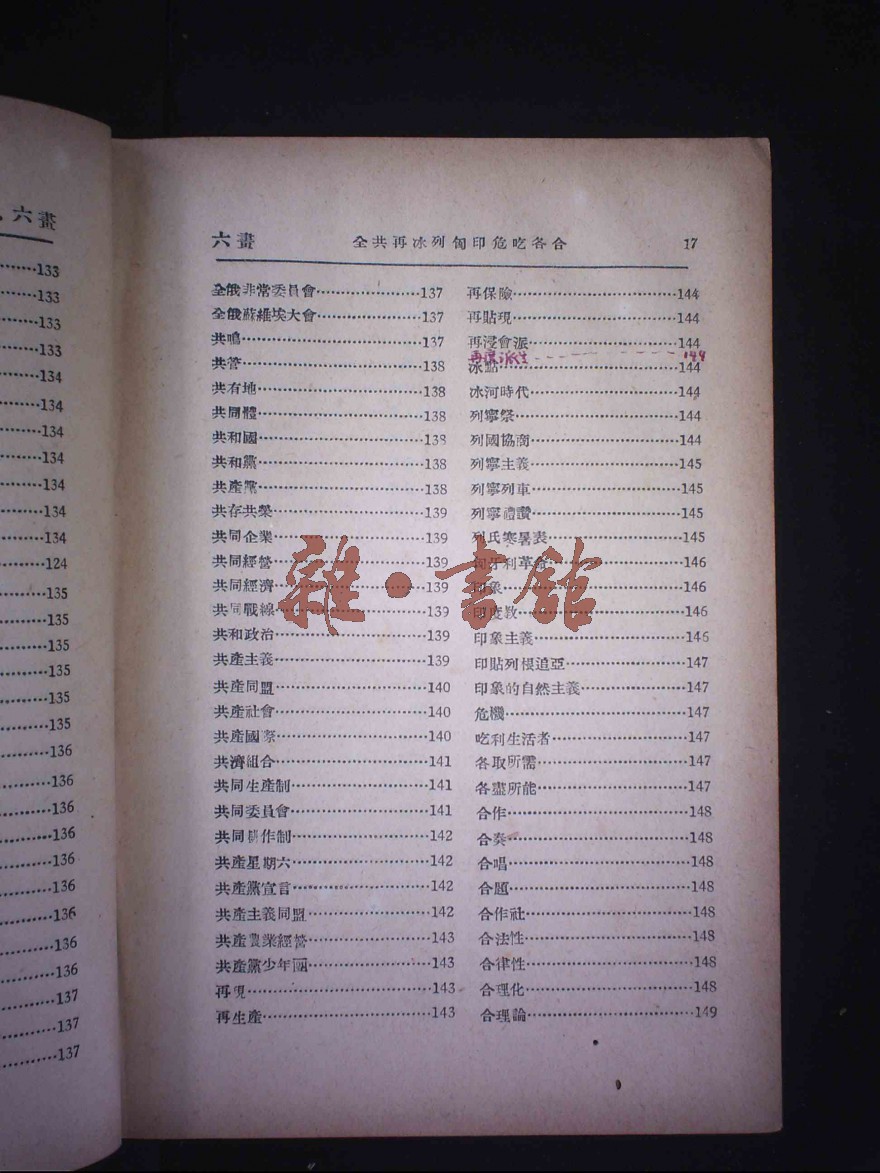 六畫
133
133
133
133
134
134
134
134
134
134
134
124
135
135
135
135
135
135
136
136
136
136
136
136
136
136
136
137
137
137
六畫 全共再冰列匈印危吃各合 17
全俄非常委員會 137
全俄蘇維埃大會 137
共鳴 137
共管 138
共有地 138
共同體 138
共和國 138
共和黨 138
共產黨 138
共存共榮 139
共同企業 139
共同經營 139
共同經濟 139
共同戰線 139
共和政治 139
共產主義 139
共產同盟 140
共產社會 140
共產國際 140
共濟組合 141
共同生產制 141
共同委員會 141
共同耕作制 142
共產星期六 142
共產黨宣言 142
共產主義同盟 142
共產農業經營 143
共產黨少年團 143
再現 143
再生產 143
再保險 144
再貼現 144
再浸會派 144
144
冰點 144
冰河時代 144
列寧祭 144
列國協商 144
列寧主義 145
列寧列車 145
列寧禮讚 145
列氏寒暑表 145
匈牙利革命 146
印象 146
印度教 146
印象主義 146
印貼列根追亞 147
印象的自然主義 147
危機 147
吃利生活者 147
各取所需 147
各盡所能 147
合作 148
合奏 148
合唱 148
合題 148
合作社 148
合法性 148
合律性 148
合理化 148
合理論 149
雜·書館